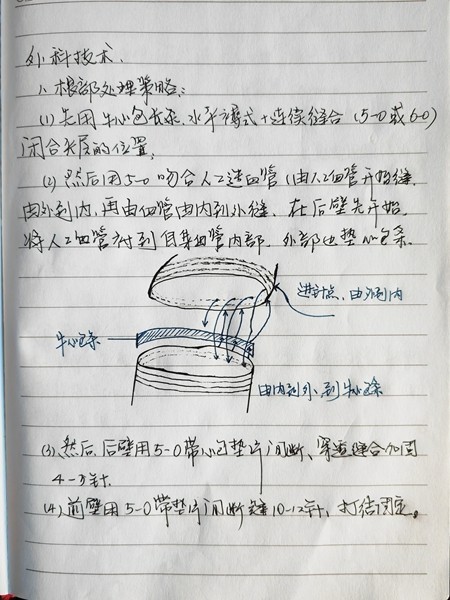 外科技术.
1、根部处理策略:
(1) 先用牛心包长条, 水平褥式+连续缝合 (5-0或6-0)
闭合夹层的位置,
(2) 然后用5-0吻合人工造血管 (由人工血管开始缝,
由外到内, 再由血管由内到外缝, 在后壁先开始,
将人工血管衬到自体血管内部, 外部也垫心包条.
进针点, 由外到内
牛心包条
由内到外, 到牛心包条
(3), 然后, 后壁用5-0带心包垫片间断、缝合加固
4-3针.
(4), 前壁用5-0带垫片间断缝10-12针, 打结固定。